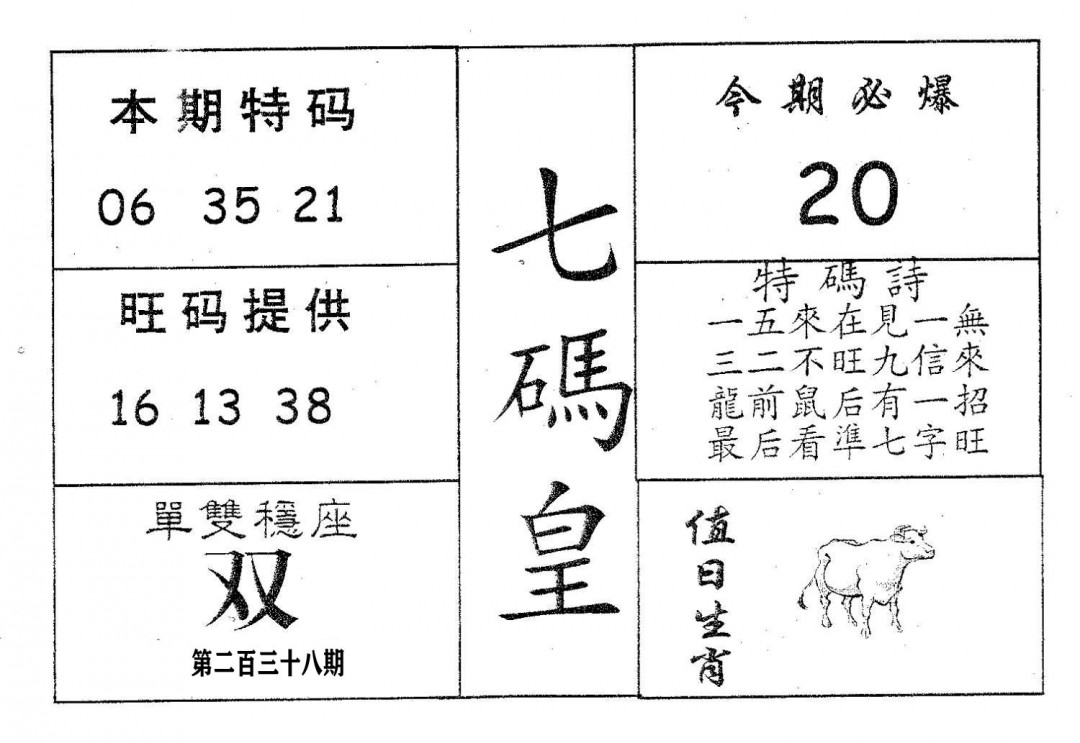 本期特码
06 35 21
旺码提供
16 13 38
單雙穩座
双
第二百三十八期
七碼皇
今期必爆
20
特碼詩
一五來在見一無
三二不旺九信來
龍前鼠后有一招
最后看準七字旺
值日生肖